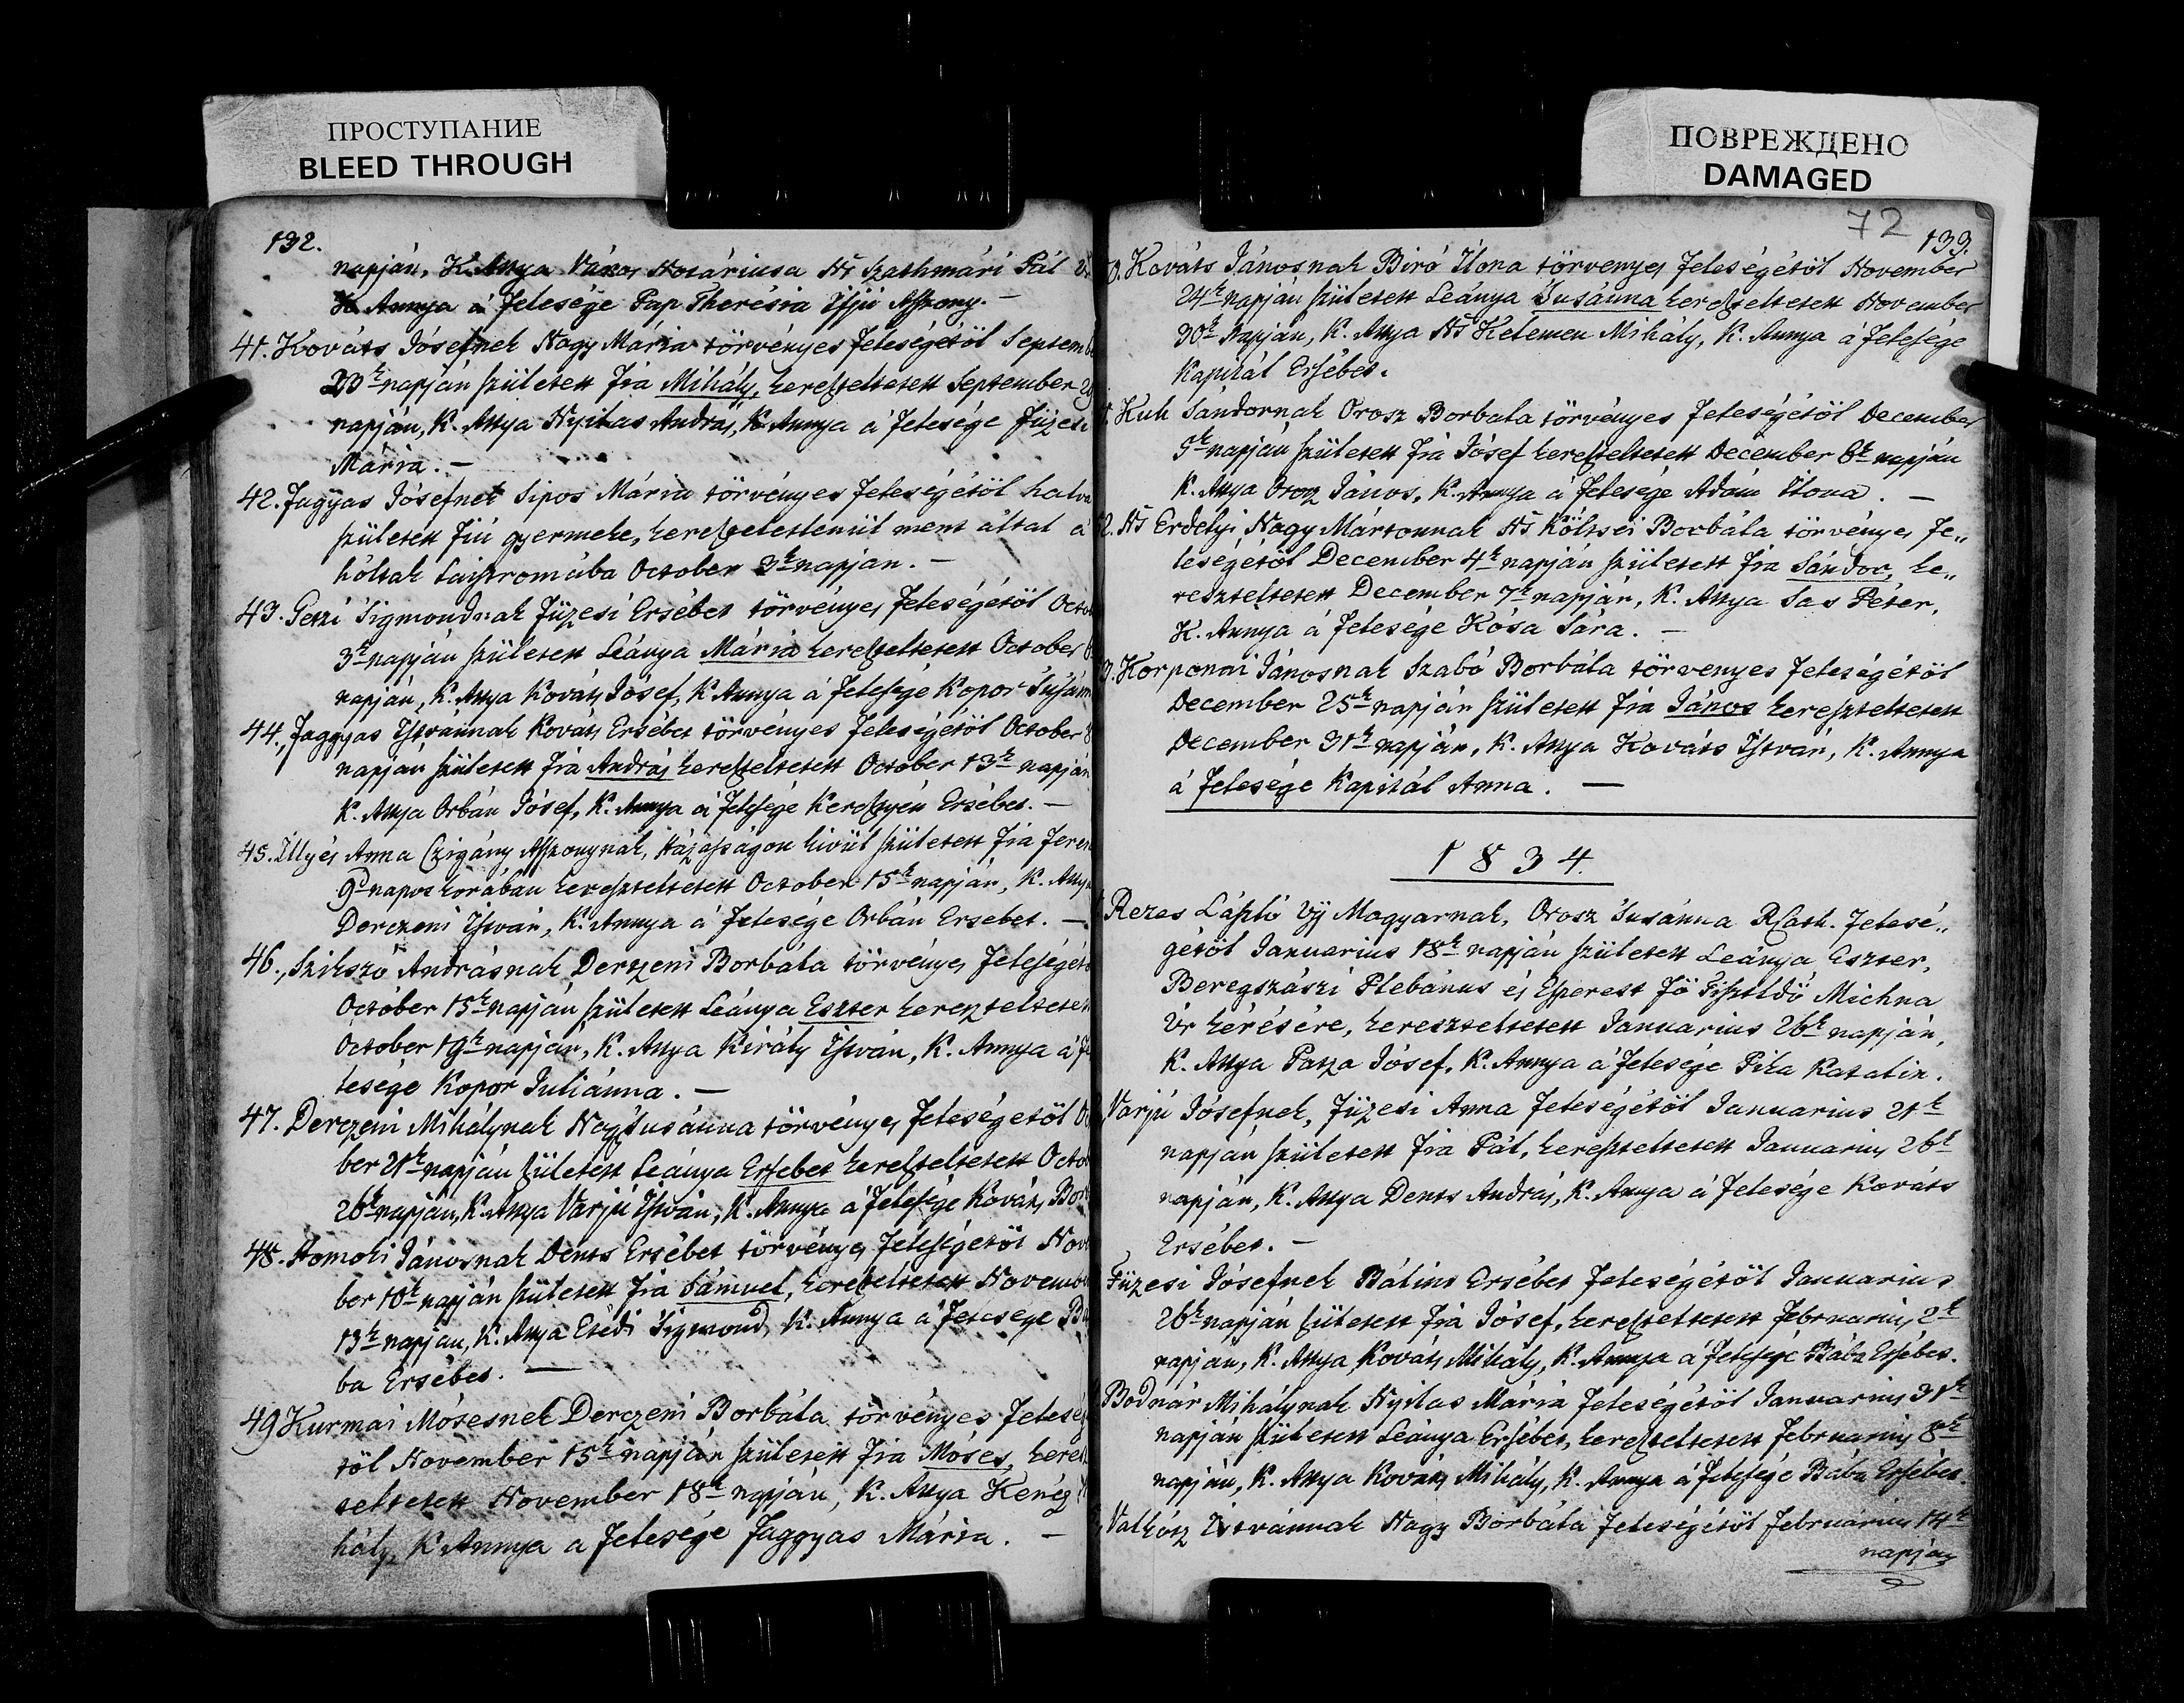 ПРОСТУПАНИЕ
BLEED THROUGH
ПОВРЕЖДЕНО
DAMAGED
132.
napján, K. Attya Város Notáriusa Ns Szathmári Pál
K Annya á felesége Pap Therésia Ifjú Aſszony. —
41. Kováts Jósefnek Nagy Mária törvényes feleségétöl Septemb
23k napján született fia Mihály, kereszteltetett September 29
napján, K. Attya Nyilas András, K. Annya á felesége Füzesi
Mária. —
42. Faggyas Jósefnek Sipos Mária törvényes feleségétöl halva
született fiú gyermeke, kereszteletlenül ment által á
hóltak Laistromába October 3k napján. —
43. Getzi Sigmondnak Füzesi Ersébet törvényes feleségétöl Octob
3k napján született Leánya Mária kereszteltetett October 6
napján, K. Attya Kováts Jósef, K Annya á felesége Kopor Susánn
44., Faggyas Istvánnak Kováts Ersébet törvényes feleségétöl October 8
napján született fia András kereszteltetett October 13k napján
K. Attya Orbán Jósef, K. Annya á felesége Keresztyén Ersébet. —
45. Illyés Anna Czigány Aſszonynak, Házasságon kivül született fia Feren
9d napos korában kereszteltetett October 15k napján, K. Attya
Derczeni István, K. Annya á felesége Orbán Ersebet. —
46., Szikszó Andrásnak Derczeni Borbála törvényes feleségétö
October 15k napján született Leánya Eszter kereszteltetett
October 19k napján, K. Attya Király István, K. Annya á fe
lesége Kopor Juliánna. —
47. Derczeni Mihálynak Nagy Susánna törvényes feleségetöl Octo
ber 21k napján született Leánya Ersebet kereszteltetett Octob
26k napján, K. Attya Varjú István, K. Annya á felesége Kováts Bor
48. Homoki Jánosnak Dents Ersébet törvényes feleségétöl Nov
ber 10k napján született fia Sámuel, kereszteltetett Novem
13k napján, K. Attya Esédi Sigmond, K. Annya á felesége Ba
ba Ersébet. —
49 Kurmai Mósesnek Derczeni Borbála törvényes feleség
töl November 15k napján született fia Móses, keresz
teltetett November 18k napján, K. Attya Kenéz
hály, K Annya a felesége Faggyas Mária. —
72
133.
0. Kováts Jánosnak Biró Ilona törvenyes feleségétöl November
24k napján született Leánya Susánna kereszteltetett November
30k Napján, K. Attya Ns Kelemen Mihály, K. Annya á felesége
Kapitál Ersébet.
Kuk Sándornak Orosz Borbala törvényes feleségétöl December
5k napján született fia Jósef kereszteltetett December 6k napján
K. Attya Orosz János, K. Annya á felesége Adám Ilona. —
2. Ns Erdélyi Nagy Mártonnak Ns Költsei Borbála törvényes fe„
leségétöl December 4k napján született fia Sándor, ke„
reszteltetett December 7k napján, K. Attya Sas Péter,
K. Annya á felesége Kósa Sára. —
3. Korponai Jánosnak Szabó Borbála törvenyes feleségétöl
December 25k napján született fia János kereszteltetett
December 31k napján, K. Attya Kováts István, K. Annya
á felesége Kapitál Anna. —
1834.
Rezes Lászlo Uj Magyarnak, Orosz Susánna R Cath. felesé„
gétöl Januarius 18k napján született Leánya Eszter,
Beregszászi Plebánus és Esperest Fö Tisztlóö Michna
Úr kérésére, kereszteltetett Januarius 26k napján,
K. Attya Patza Jósef, K. Annya á felesége Fika Katalin.
Varjú Jósefnek, Füzesi Anna feleségétöl Januarius 21k
napján született fia Pál, kereszteltetett Januarius 26k
napján, K. Attya Dents András, K. Annya á felesége Kováts
Ersébet. —
Füzesi Jósefnek Bálint Ersébet feleségétöl Januarius
26k napján született fia Jósef, kereszteltetett februarius 2k
napján, K. Attya Kováts Mihály, K. Annya á felesége Bába Ersébet.
Bodnár Mihálynak Nyilas Mária feleségétöl Januarius 31k
napján született Leánya Ersébet, kereszteltetett februarius 8k
napján, K. Attya Kováts Mihály, K. Annya á felesége Bába Ersébet.
Valkósz Istvánnak Nagy Borbála feleségétöl februárius 14k
napján